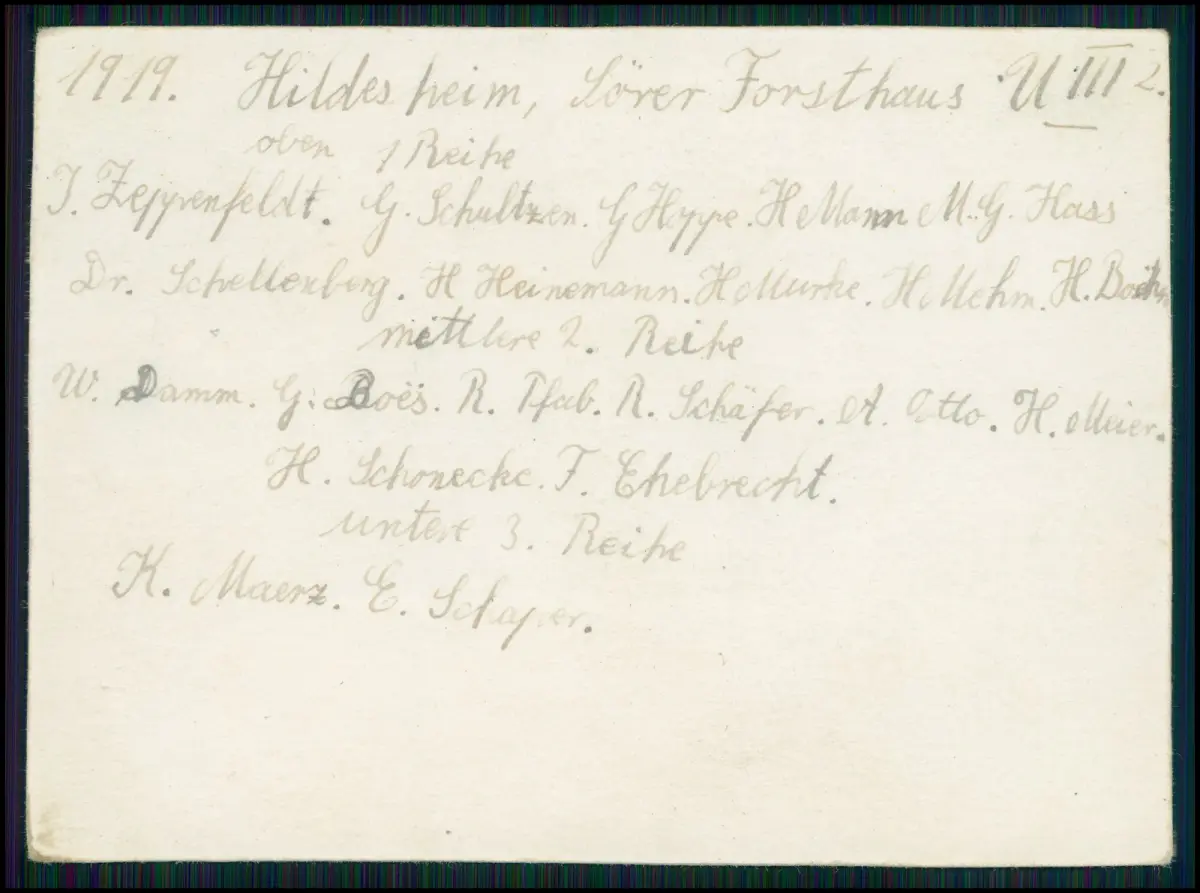 1919. Hildesheim, Sörer Forsthaus U III 2.
oben 1 Reihe
J. Zeppenfeldt. G. Schultzen. G Hyppe. H Mann M. G. Hass
Dr. Schellenberg. H Heinemann. H Murke. H. Mehm. H. Boehm
mittlere 2. Reihe
W. Damm. G. Boës. R. Pfab. R. Schäfer. A. Otto. H. Meier.
H. Schonecke. F. Ehebrecht.
untere 3. Reihe
K. Maerz. E. Schaper.